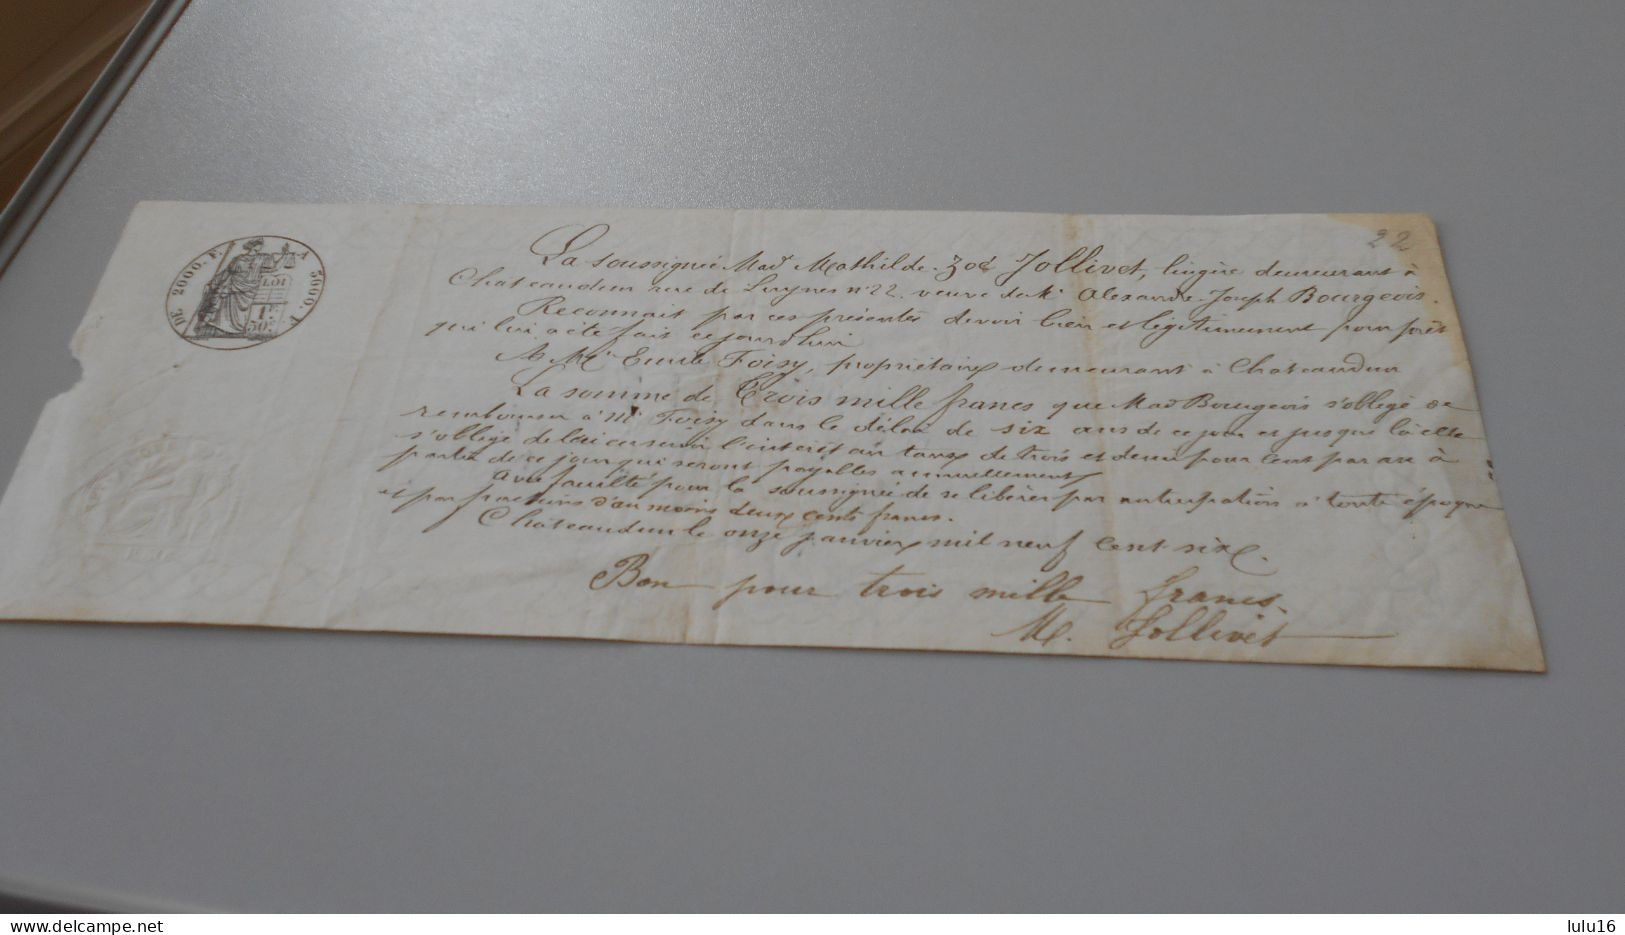 DE 2000. F. A 3000. F.
LOI
1F.
50c.
22
La soussignée Made Mathilde Zoé Jollivet, lingère demeurant à
Chateaudun rue de Luynes n° 22, veuve de Mr Alexandre Joseph Bourgeois.
Reconnait par ces présentes devoir bien et légitimement pour prêt
qui lui a été fait ce jourd'hui
A Mr Emile Foisy, propriétaire demeurant à Chateaudun
La somme de Trois mille francs que Made Bourgeois s'oblige de
rembourser à Mr Foisy dans le délai de six ans de ce jour et jusque là elle
s'oblige de lui en servir l'intérêt au taux de trois et demi pour cent par an à
partir de ce jour qui seront payables annuellement
Avec faculté pour la soussignée de se libérer par anticipation à toute époque
et par fractions d'au moins deux cents francs.
Chateaudun le onze janvier mil neuf cent six.
Bon pour trois mille francs.
M. Jollivet
lulu16